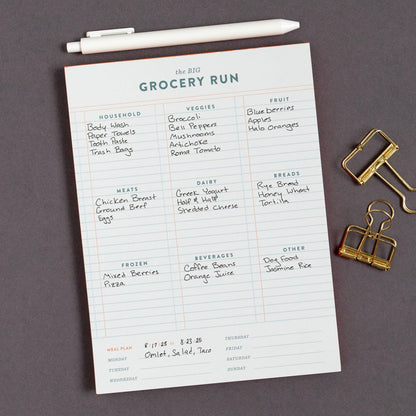 the BIG
GROCERY RUN
HOUSEHOLD
Body Wash
Paper Towels
Tooth Paste
Trash Bags
VEGGIES
Broccoli
Bell Peppers
Mushrooms
Artichoke
Roma Tomato
FRUIT
Blueberries
Apples
Halo Oranges
MEATS
Chicken Breast
Ground Beef
Eggs
DAIRY
Greek Yogurt
Half & Half
Shredded Cheese
BREADS
Rye Bread
Honey Wheat
Tortilla
FROZEN
Mixed Berries
Pizza
BEVERAGES
Coffee Beans
Orange Juice
OTHER
Dog Food
Jasmine Rice
MEAL PLAN 8/17/25 to 8/23/25
MONDAY Omlet, Salad, Taco
TUESDAY
WEDNESDAY
THURSDAY
FRIDAY
SATURDAY
SUNDAY